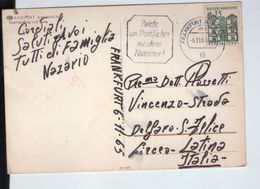 Cordiali
Saluti a voi
Tutti di Famiglia
Nazario
FRANKFURT 6-11-65
Briefe
an Postfächer
nie ohne
Nummer!
FRANKFURT
DEUTSCHE BUNDESPOST
15
Dott. Rossetti
Vincenzo-Strada
S. Felice
Circeo-Latina
Italia-